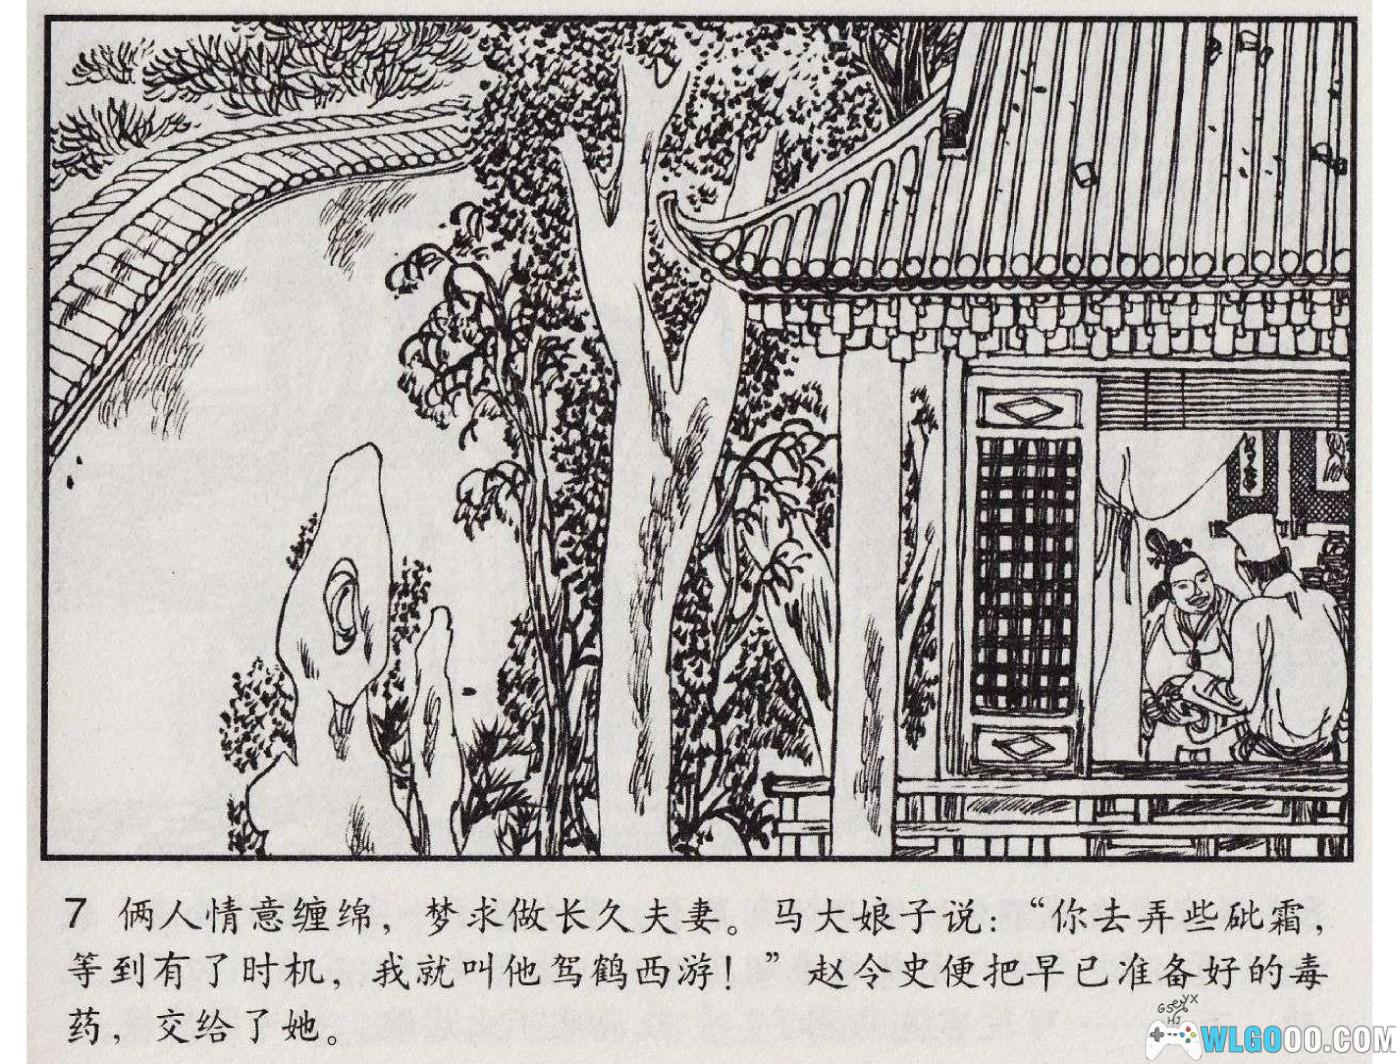 7 俩人情意缠绵，梦求做长久夫妻。马大娘子说：“你去弄些砒霜，
等到有了时机，我就叫他驾鹤西游！”赵令史便把早已准备好的毒
药，交给了她。
WLGOOO.COM